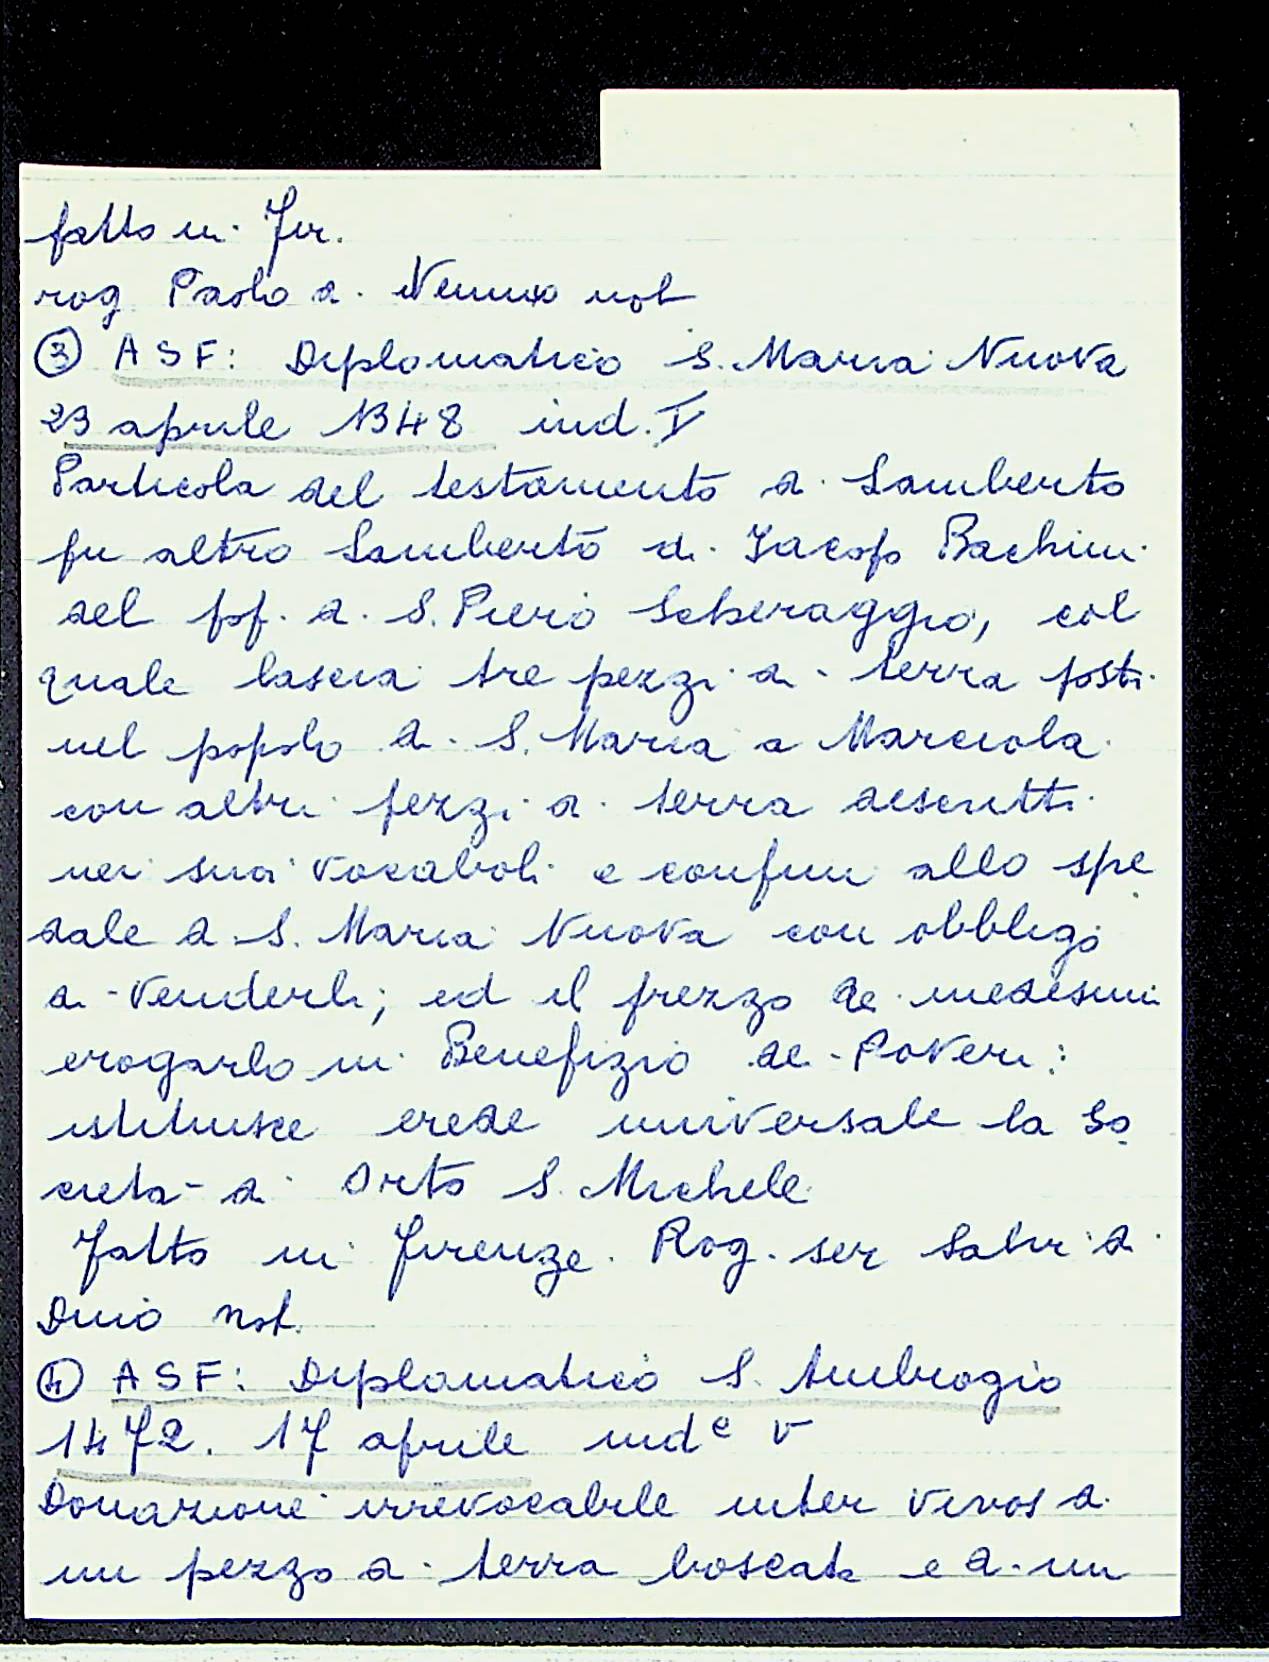 fatto in Fir.
rog. Paolo di Nemmo not
③ ASF: Diplomatico S. Maria Nuova
23 aprile 1348 ind. V
Particola del testamento di Lamberto
fu altro Lamberto di Iacopo Bachini
del pop. di S. Piero Scheraggio, col
quale lascia tre pezzi di terra posti
nel popolo di S. Maria a Marciola
con altri pezzi di terra descritti
nei suoi vocaboli e confini allo spe
dale di S. Maria Nuova con obbligo
di venderli; ed il prezzo de medesimi
erogarlo in Benefizio de Poveri:
istituisce erede universale la So
cietà di Orto S. Michele
fatto in Firenze. Rog. ser Salvi di
Dino not.
④ ASF: Diplomatico S. Ambrogio
1472. 17 aprile indᵉ V
Donazione irrevocabile inter vivos di
un pezzo di terra boscata e di un